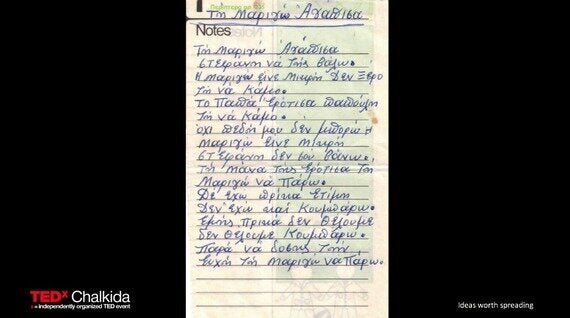 Τη Μαριγώ Αγάπισα
Notes
Τη Μαριγώ Αγάπισα
στεφάνη νά της βάλω.
Η μαριγώ είνε Μικρή Δεν Ξέρο
Τη να Κάμο.
Το Παπά Ερότισα παπούλη
Τη νά Κάμο.
όχι πεδή μου δέν μπορώ η
Μαριγώ είνε μικρή
στεφάνη δεν σου βάνω.
Τη μάνα της ερότισα Τη
Μαριγώ νά Πάρω.
Δέ έχω πρίκα έτιμη
Δεν έχω καί Κουμπάρω.
Εμής πρικά δεν Θέλουμε
δεν Θέλουμε Κουμπάρω.
Παρά νά δόσης Τήν
ευχή Τή Μαριγώ να Πάρω.
TEDx Chalkida
x = independently organized TED event
Ideas worth spreading